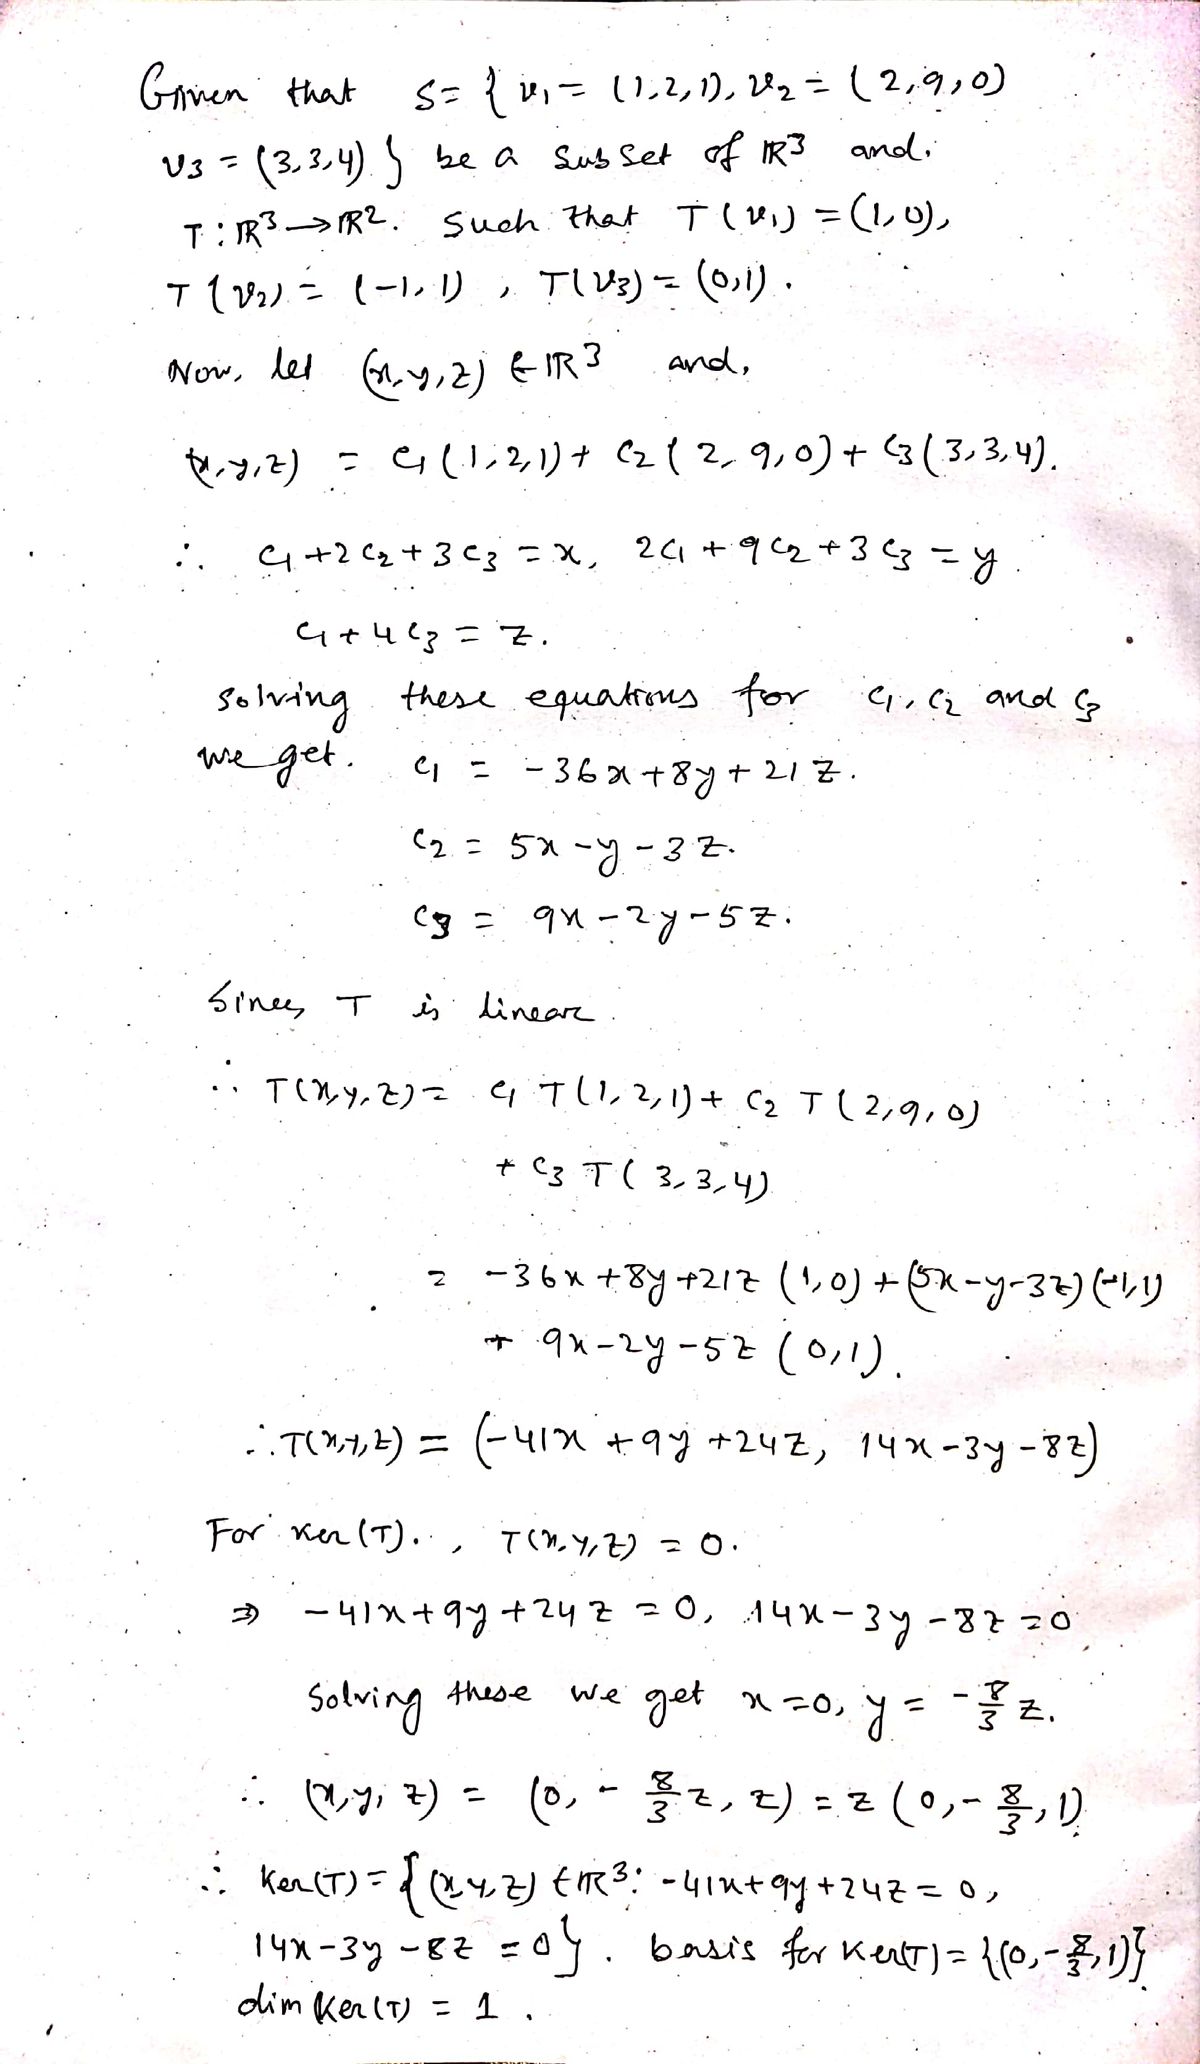 Given that S = { v₁ = (1,2,1), v₂ = (2,9,0)
v₃ = (3,3,4) } be a subset of ℝ³ and.
T : ℝ³ → ℝ². Such that T(v₁) = (1,0),
T(v₂) = (-1,1) , T(v₃) = (0,1) .
Now, let (x,y,z) ∈ ℝ³ and,
(x,y,z) = c₁(1,2,1) + c₂(2,9,0) + c₃(3,3,4).
∴ c₁+2c₂+3c₃ = x, 2c₁+9c₂+3c₃ = y
c₁+4c₃ = z.
solving these equations for c₁, c₂ and c₃
we get. c₁ = -36x+8y+21z.
c₂ = 5x-y-3z.
c₃ = 9x-2y-5z.
Since, T is linear.
∴ T(x,y,z) = c₁ T(1,2,1) + c₂ T(2,9,0)
+ c₃ T(3,3,4)
= -36x+8y+21z (1,0) + (5x-y-3z)(-1,1)
+ 9x-2y-5z (0,1).
∴ T(x,y,z) = (-41x+9y+24z, 14x-3y-8z)
For Ker(T). , T(x,y,z) = 0.
⇒ -41x+9y+24z = 0, 14x-3y-8z = 0
Solving these we get x=0, y = -8/3 z.
∴ (x,y,z) = (0, -8/3 z, z) = z(0,-8/3,1)
∴ Ker(T) = { (x,y,z) ∈ ℝ³: -41x+9y+24z = 0,
14x-3y-8z = 0}. basis for Ker(T) = {(0,-8/3,1)}
dim Ker(T) = 1 .